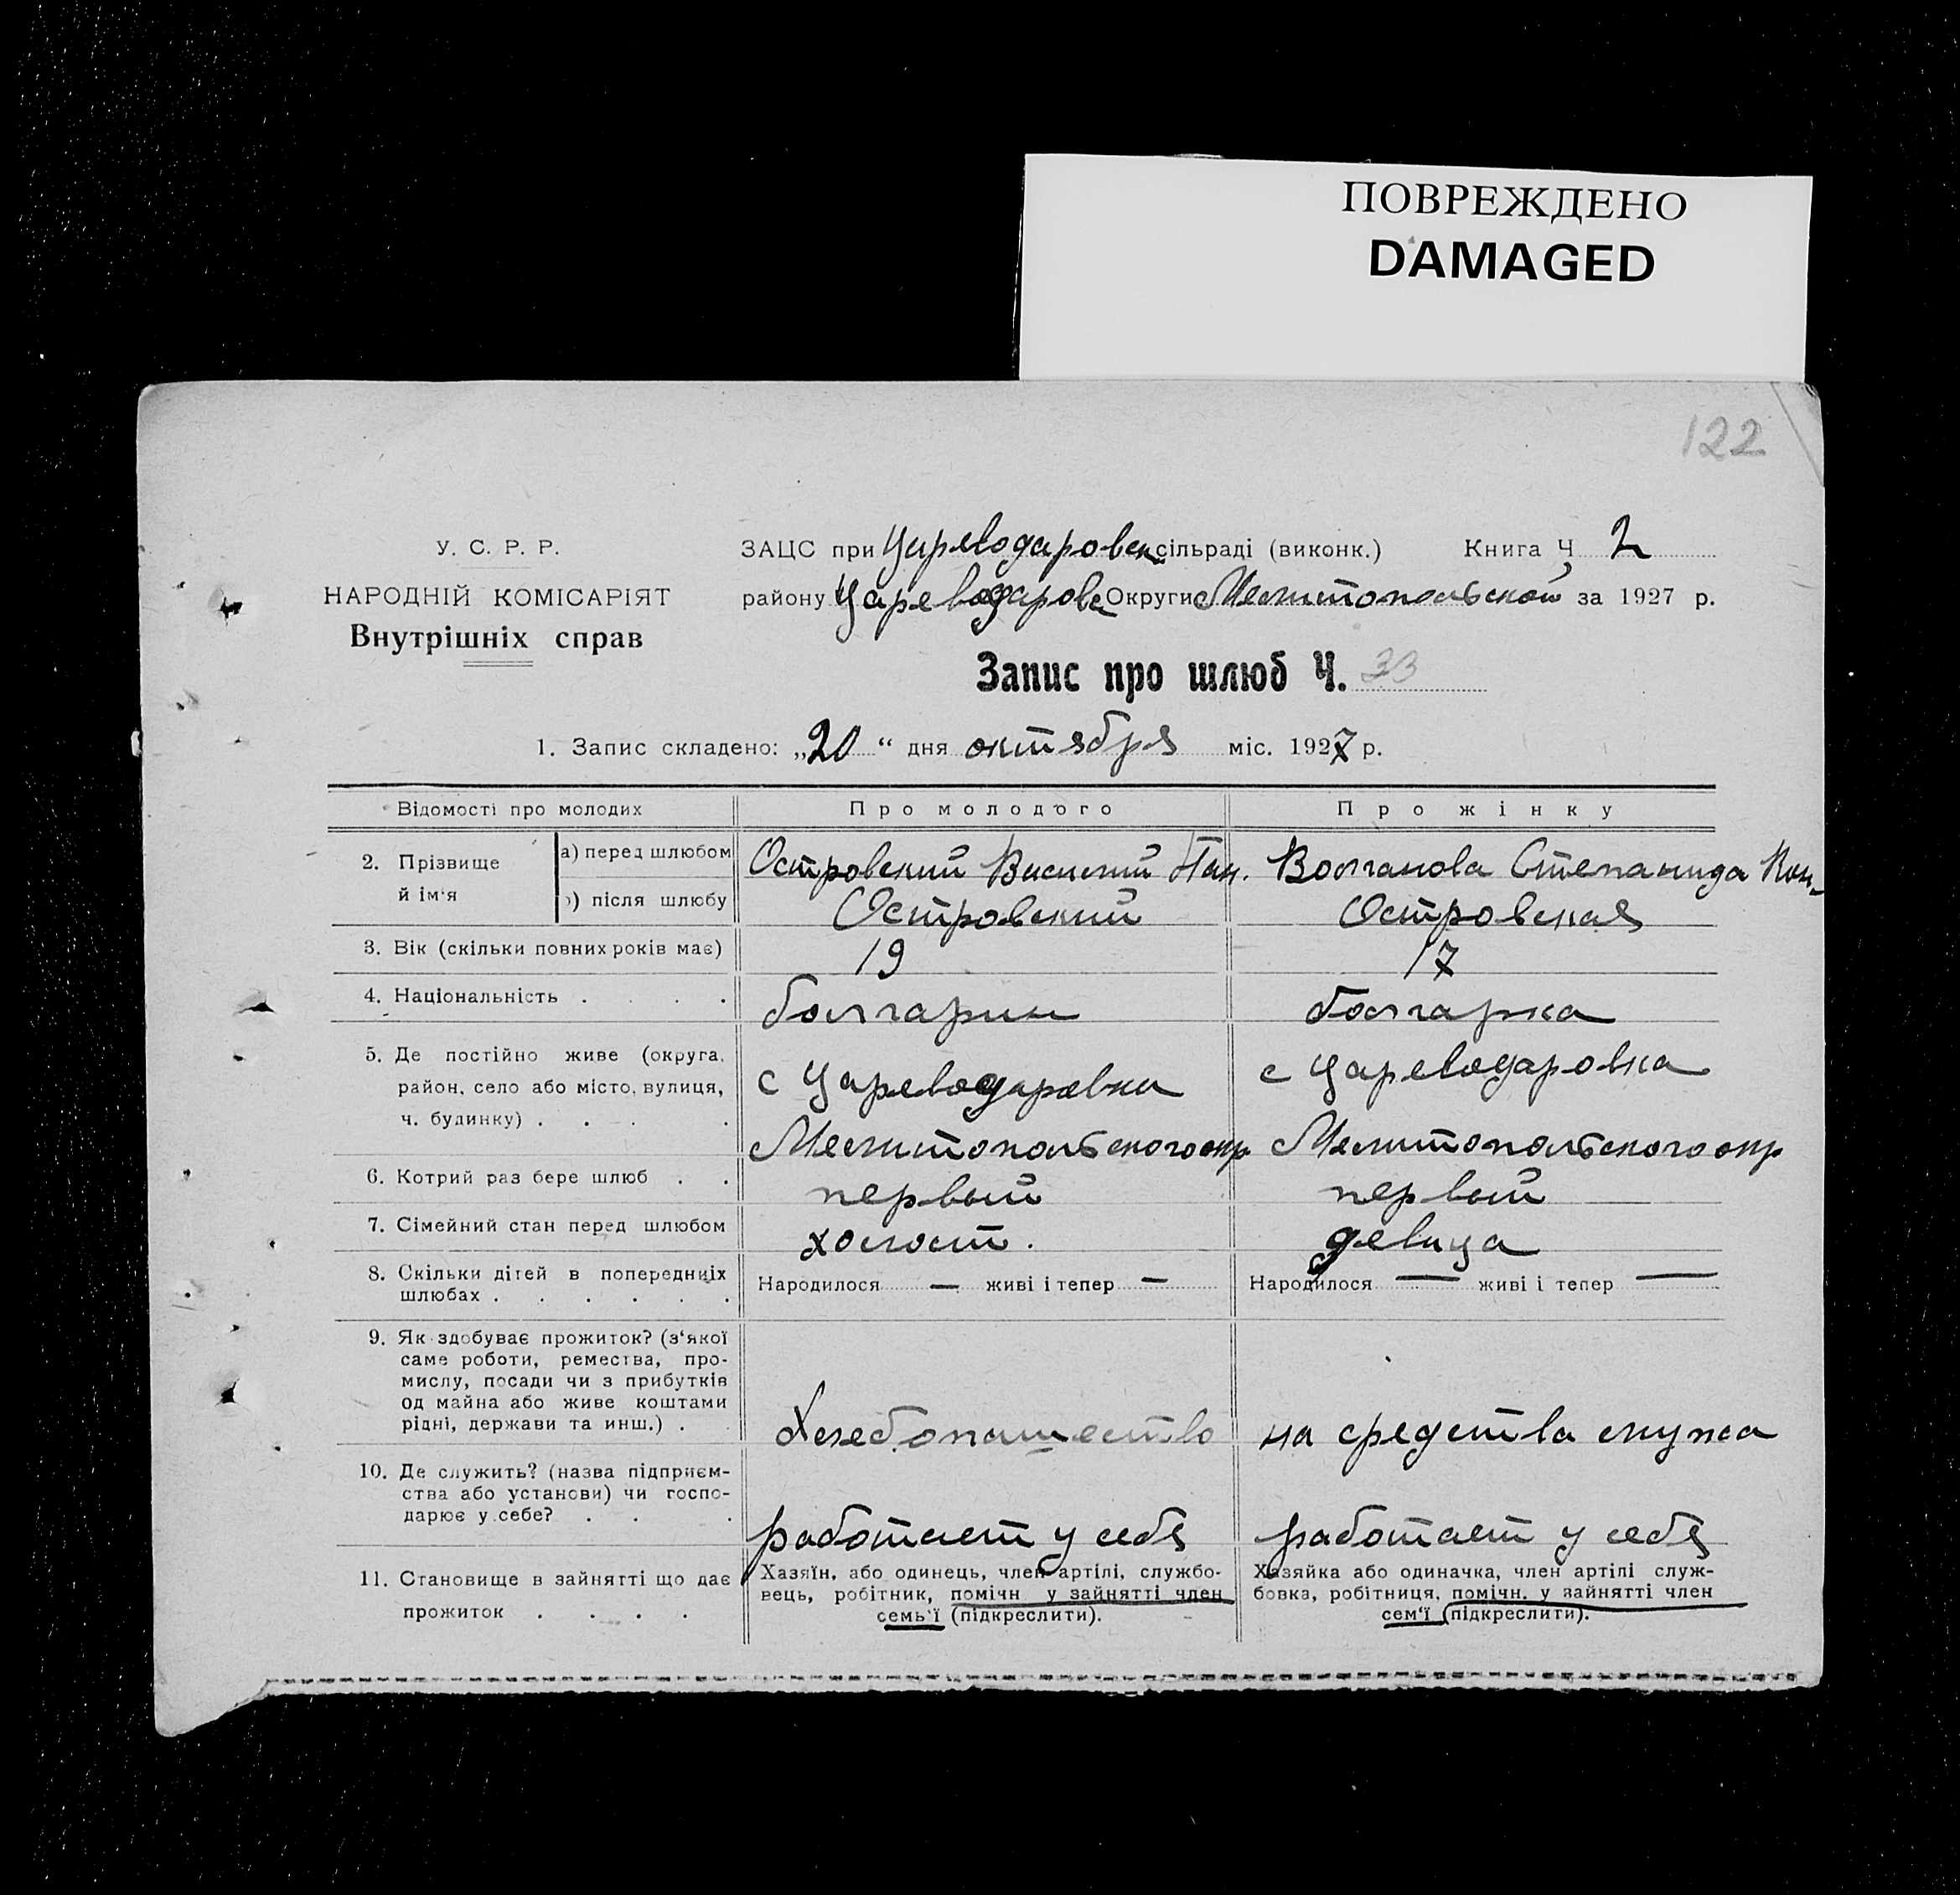 ПОВРЕЖДЕНО
DAMAGED
122
У. С. Р. Р.
НАРОДНІЙ КОМІСАРІЯТ
Внутрішніх справ
ЗАЦС при Цареводаровск сільраді (виконк.) Книга Ч 2
району Цареводаровс Округи Мелитопольской за 1927 р.
Запис про шлюб Ч. 33
1. Запис складено: „20“ дня октября міс. 1927 р.
Відомості про молодих
Про молодого
Про жінку
2. Прізвище й ім‘я
а) перед шлюбом
Островский Василий Пан.
Волганова Степанида Кон-
б) після шлюбу
Островский
Островская
3. Вік (скільки повних років має)
19
17
4. Національність . . . .
болгарин
болгарка
5. Де постійно живе (округа,
район, село або місто, вулиця,
ч. будинку) . . . .
с Цареводаровка
Мелитопольского окр
с Цареводаровка
Мелитопольского окр
6. Котрий раз бере шлюб . .
первый
первый
7. Сімейний стан перед шлюбом
холост.
девица
8. Скільки дітей в попередніх
шлюбах . . . . . .
Народилося — живі і тепер —
Народилося — живі і тепер —
9. Як здобуває прожиток? (з‘якої
саме роботи, ремества, про-
мислу, посади чи з прибутків
од майна або живе коштами
рідні, держави та инш.) .
Хлебопашество
на средства мужа
10. Де служить? (назва підприєм-
ства або установи) чи госпо-
дарює у себе? . . .
работает у себя
работает у себя
11. Становище в зайнятті що дає
прожиток . . . .
Хазяїн, або одинець, член артілі, службо-
вець, робітник, помічн у зайнятті член
семь‘ї (підкреслити).
Хазяйка або одиначка, член артілі служ-
бовка, робітниця, помічн. у зайнятті член
сем‘ї (підкреслити).